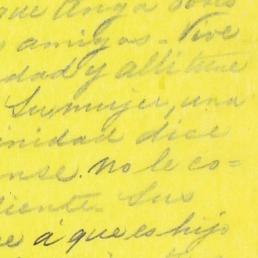 que
amigos - Vive
dad y allí tiene
Su mujer, una
inidad dice
ense. no le co=
diente. Sus
e á que es hijo